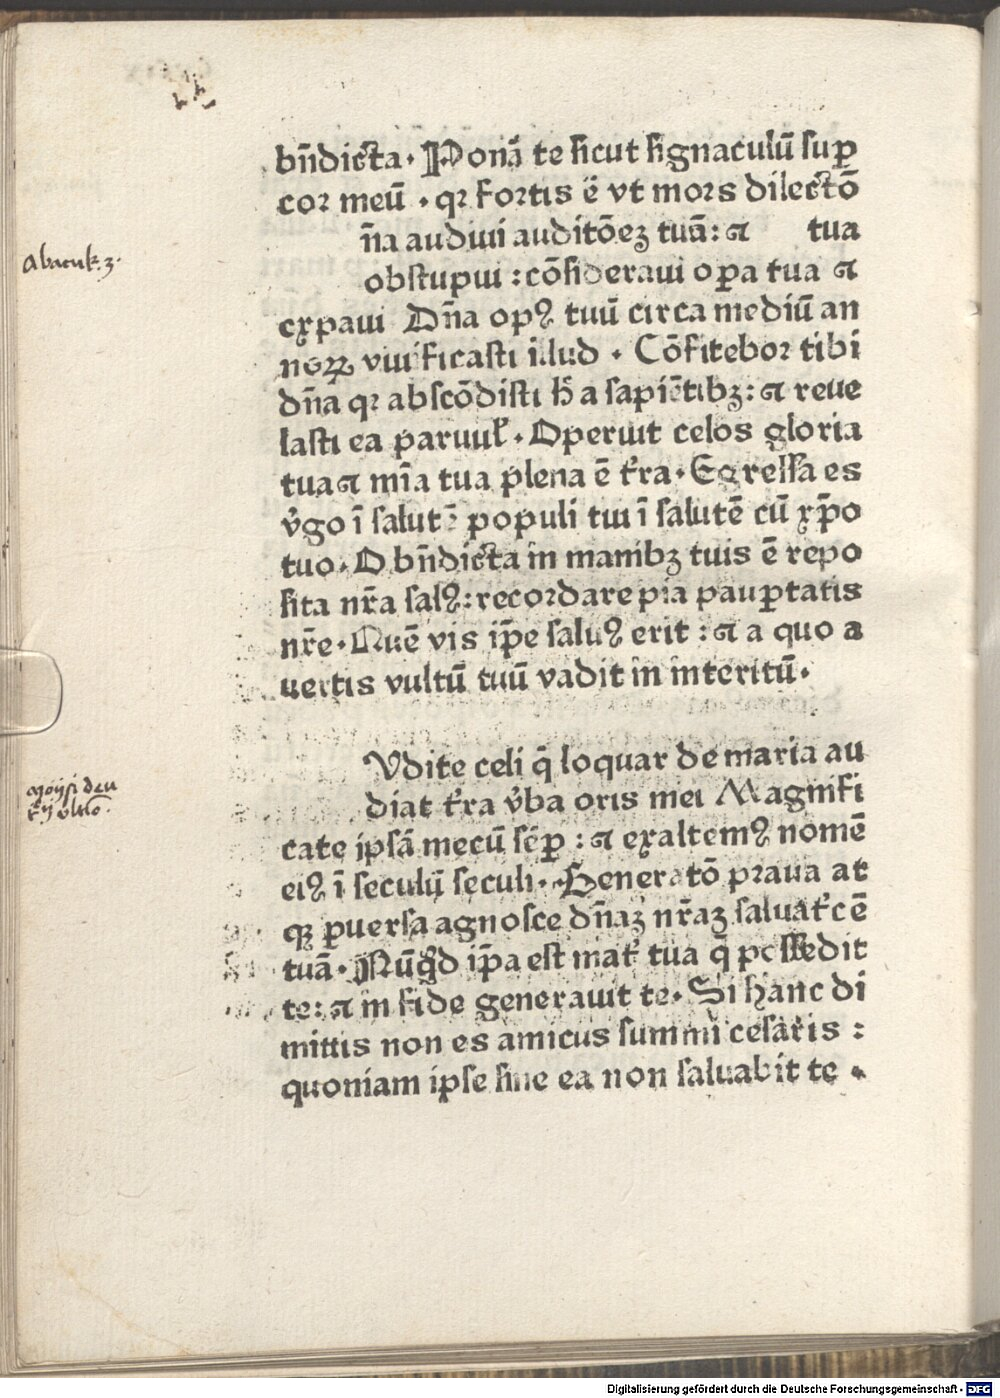 bn̄dicta · Ponā te sicut signaculū sup̲
cor meū · qꝛ fortis ē vt mors dilectō
Abacuk. 3.
n̄a audiui auditōeꝫ tuā : ⁊ tua
obstupui : cōsideraui oꝑa tua ⁊
expaui Dn̄a opꝰ tuū circa mediū an
noꝝ viuificasti illud · Cōfitebor tibi
dn̄a qꝛ abscōdisti h̄ a sapiētibꝫ : ⁊ reue
lasti ea paruul̉ · Operuit celos gloria
tua ⁊ mīa tua plena ē tr̄a · Egressa es
v̉go ī salutē populi tui ī salutē cū xp̄o
tuo · O bn̄dicta in manibꝫ tuis ē repo
sita nr̄a salꝰ : recordare pia pauꝑtatis
nr̄e · Quē vis ip̄e saluꝰ erit : ⁊ a quo a
uertis vultū tuū vadit in interitū ·
Vdite celi q̄ loquar de maria au
diat tr̄a v̉ba oris mei Magnifi
cate ipsā mecū sēꝑ : ⁊ exaltemꝰ nomē
eiꝰ ī seculū seculi · Generatō praua at
qꝫ ꝑuersa agnosce dn̄aꝫ nr̄aꝫ saluat̉cē
tuā · Nūqd ip̄a est mat̉ tua q̄ possedit
te : ⁊ in fide generauit te · Si hanc di
mittis non es amicus summi cesaris :
quoniam ipse sine ea non saluabit te ·
Digitalisierung gefördert durch die Deutsche Forschungsgemeinschaft - DFG